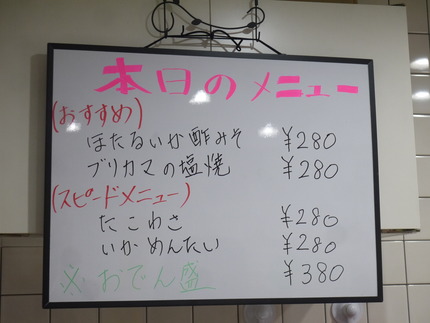 本日のメニュー
(おすすめ)
ほたるいか酢みそ ¥280
ブリカマの塩焼 ¥280
(スピードメニュー)
たこわさ ¥280
いかめんたい ¥280
※おでん盛 ¥380